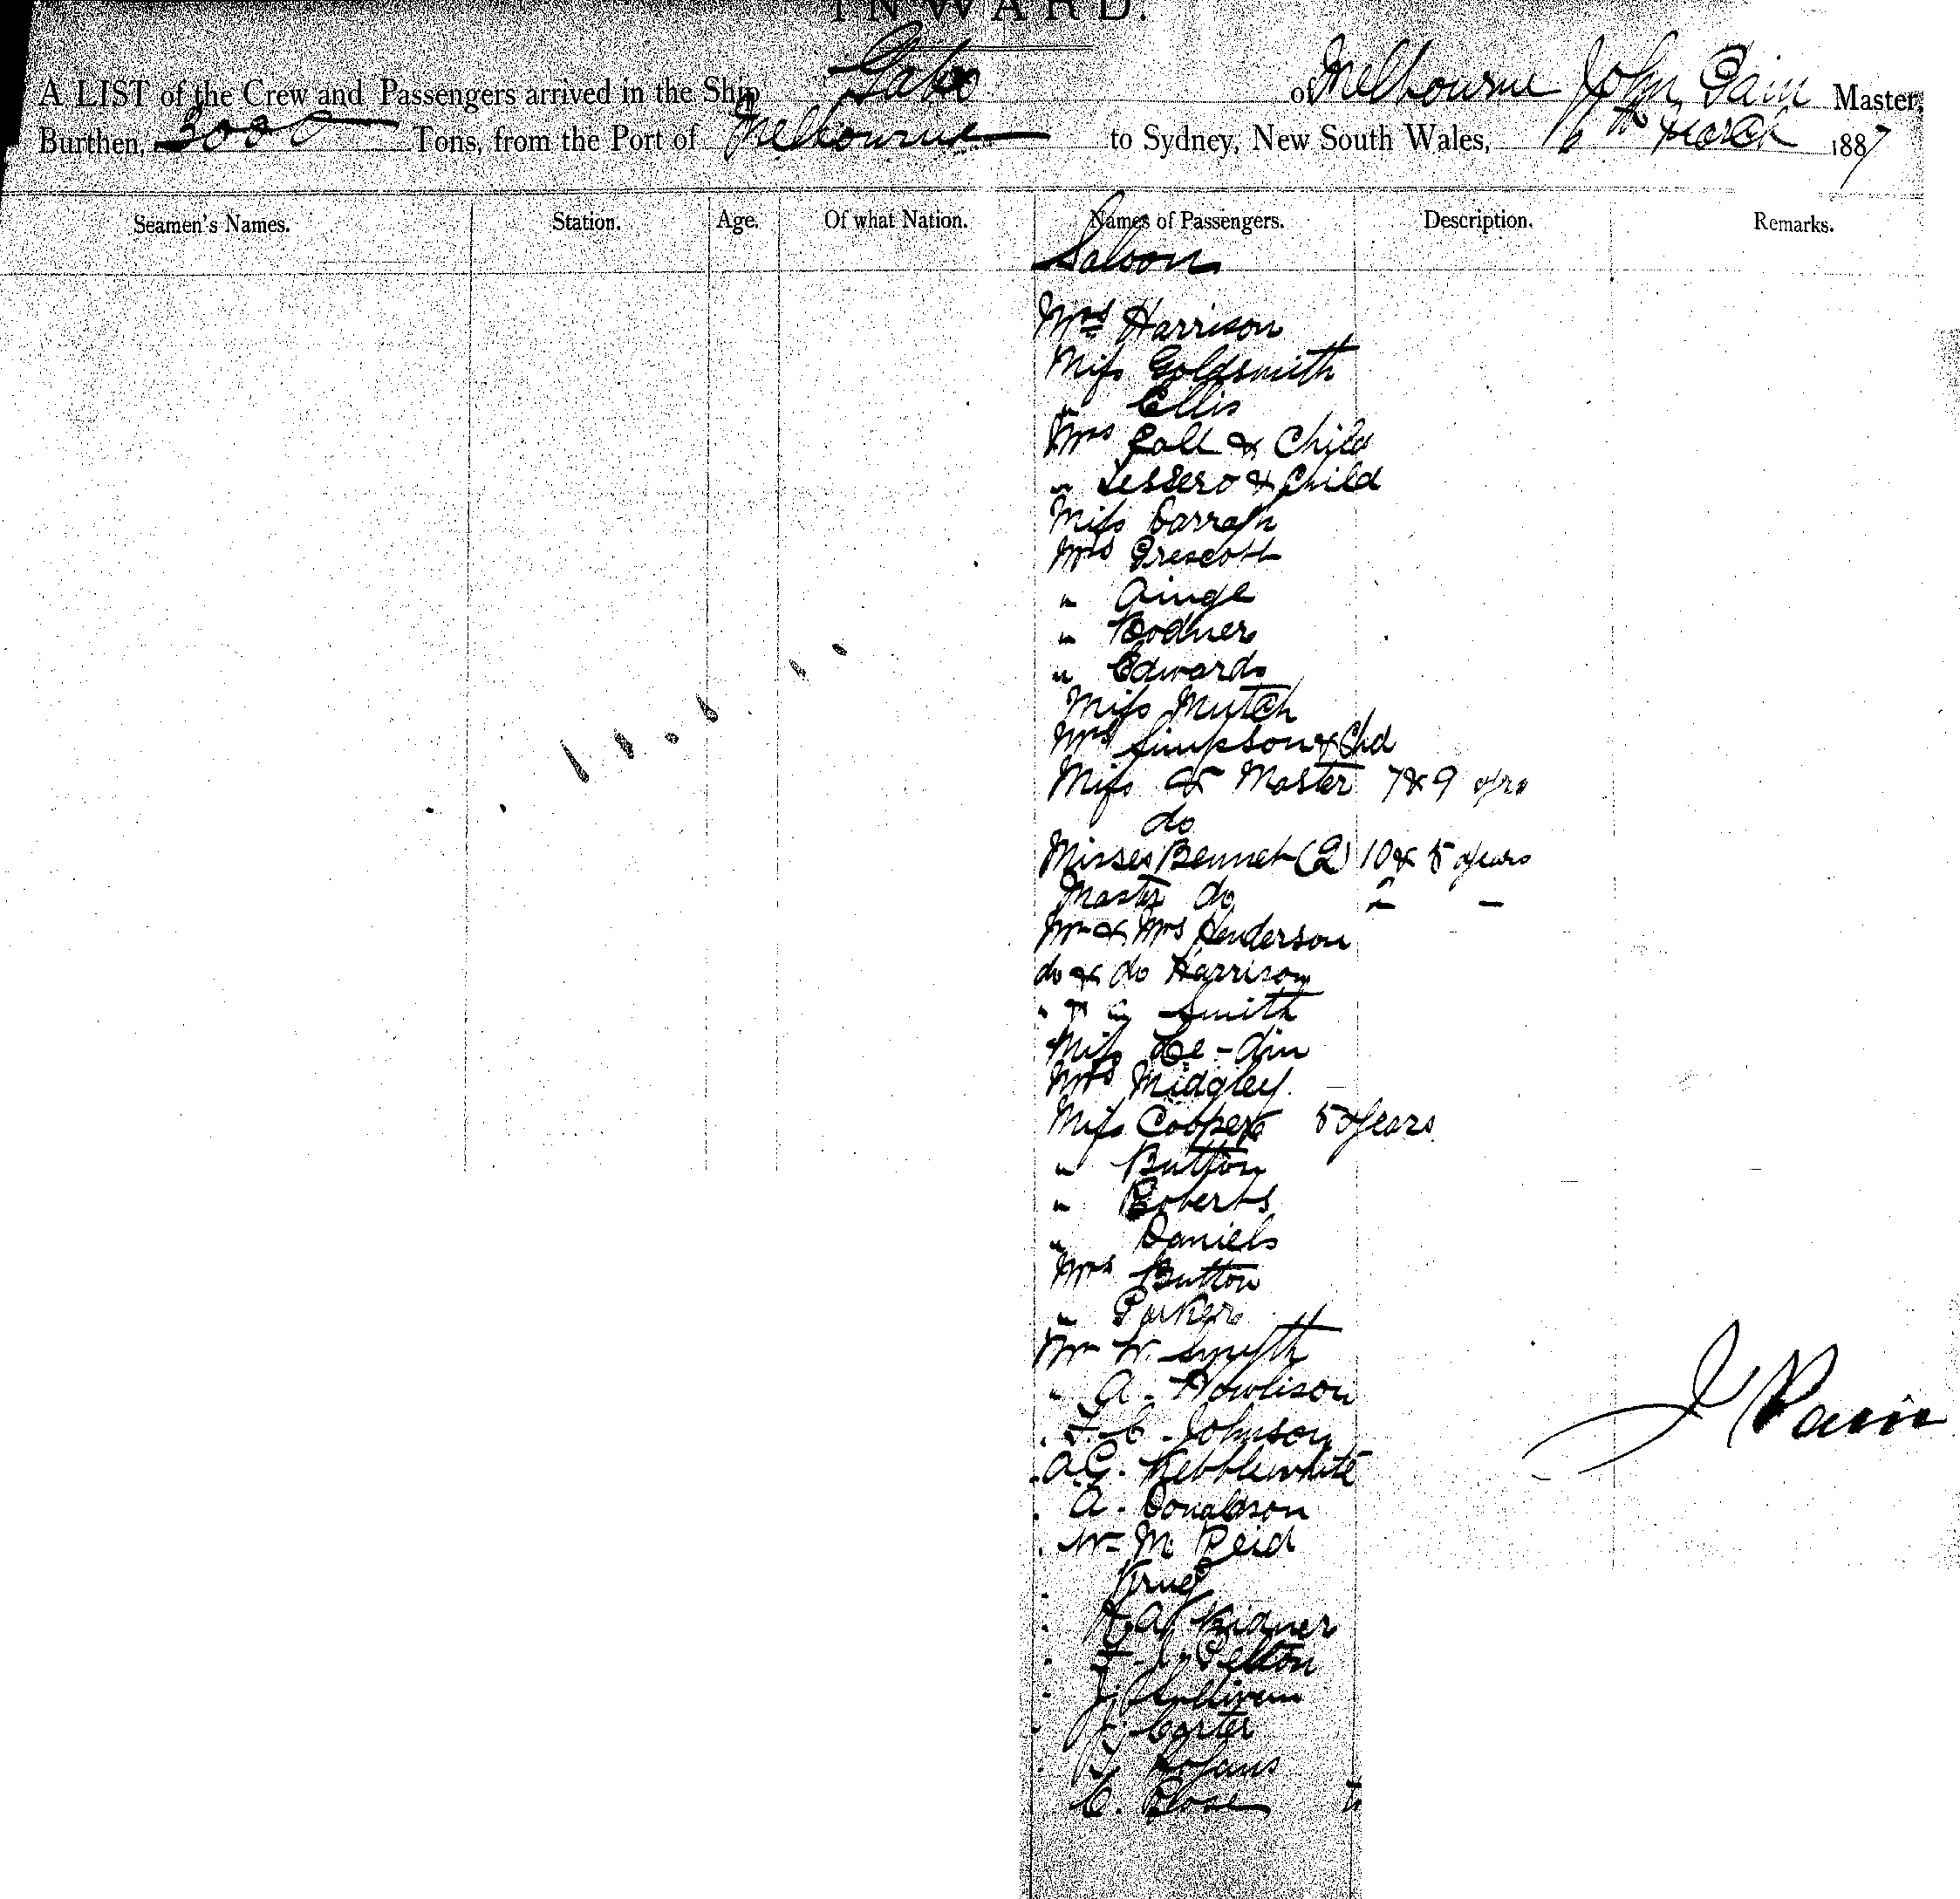 INWARD.
A LIST of the Crew and Passengers arrived in the Ship Gabo of Melbourne John Pain Master,
Burthen, 3000 Tons, from the Port of Melbourne to Sydney, New South Wales, 6th March 1887
Seamen's Names. Station. Age. Of what Nation. Names of Passengers. Description. Remarks.
Saloon
Mrs Harrison
Miss Goldsmith
" Ellis
Mrs Gall & Child
" Lessero & Child
Miss Darragh
Mrs Prescott
" Ainge
" Bodner
" Edwards
Miss Mutch
Mrs Simpson & Chd
Miss & Master 7 & 9 yrs
do
Misses Bennet (2) 10 & 5 years
Master do 2 -
Mr & Mrs Henderson
do & do Harrison
" & " Smith
Miss Le-din
Mrs Midgley
Miss Cooper 5 years
" Button
" Roberts
" Daniels
Mrs Button
" Parker
Mr W. Smyth
" A. Rowlison
" F. C. Johnson
" A.G. Kebblewhite
" A. Donaldson
" W. M. Reid
" Krug
" H. A. Kidner
" F. J. Pelton
" J. Sullivan
" J. Carter
" J.
C. Rose
J Pain